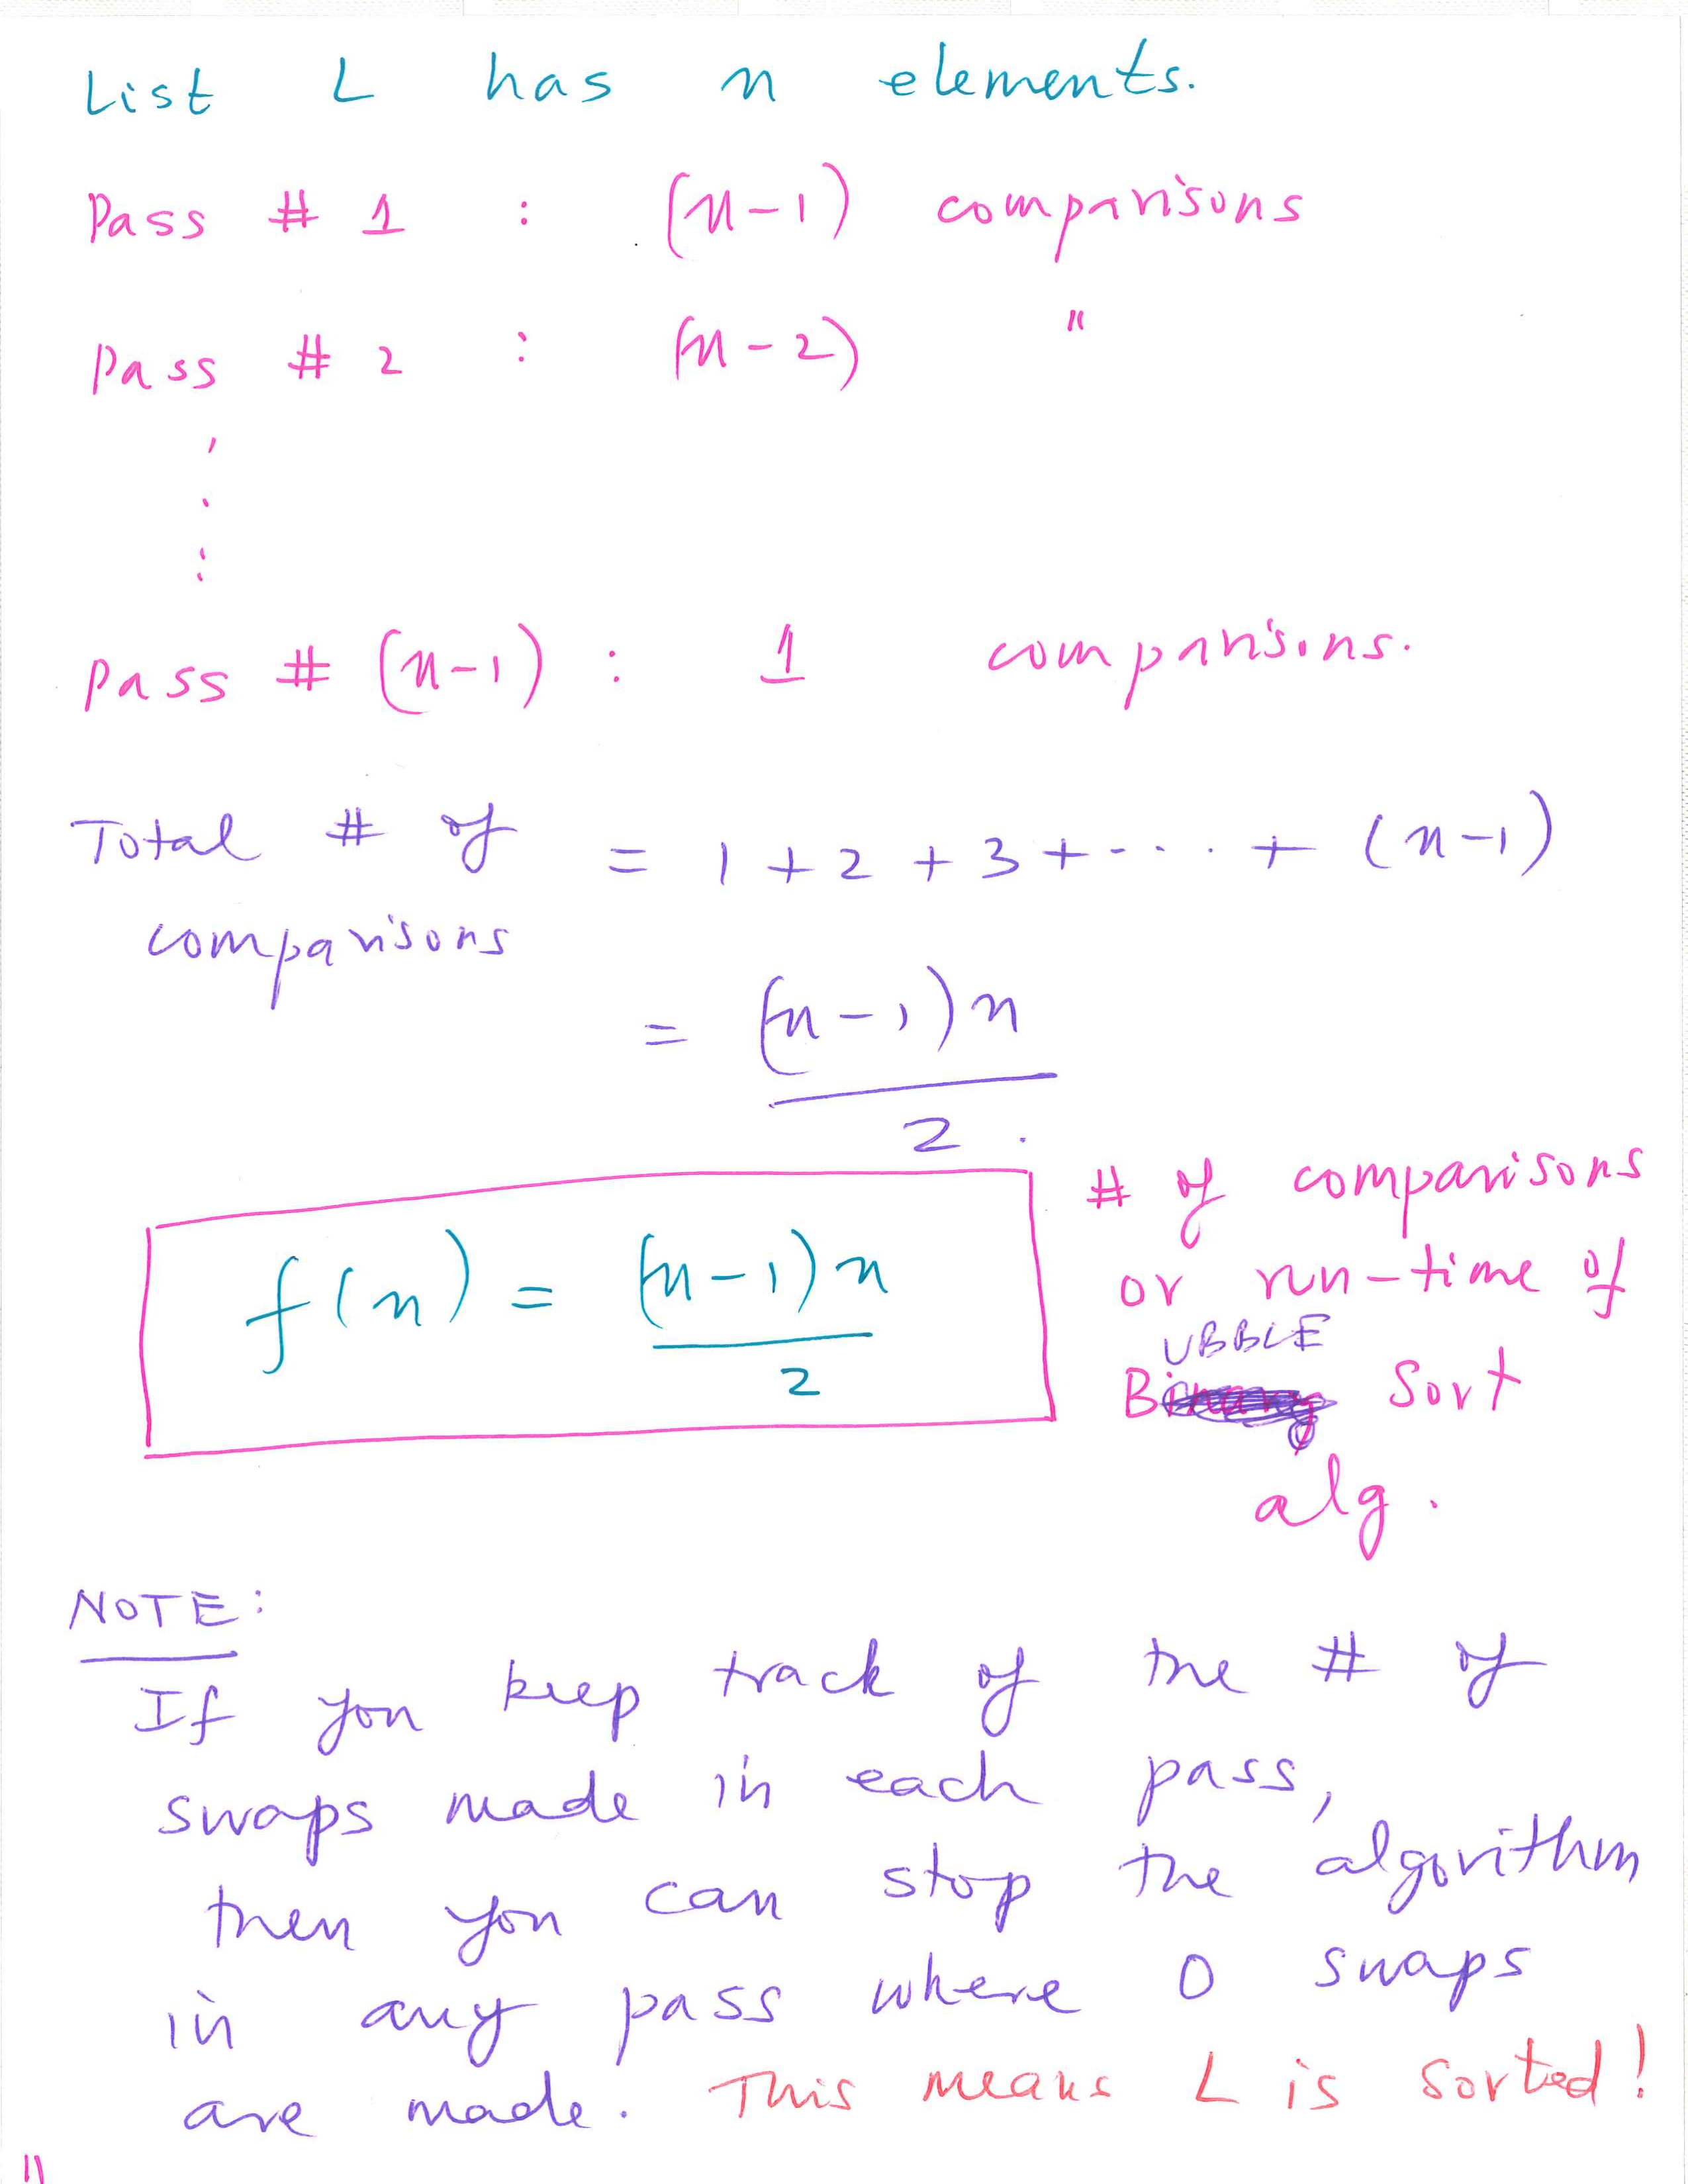 List L has n elements.
Pass # 1 : (n-1) comparisons
Pass # 2 : (n-2) "
Pass # (n-1) : 1 comparisons.
Total # of = 1 + 2 + 3 + ---- + (n-1)
comparisons
= (n-1)n
2.
f(n) = (n-1)n
2
# of comparisons
or run-time of
UBBLE
B Sort
alg.
NOTE:
If you keep track of the # of
swaps made in each pass,
then you can stop the algorithm
in any pass where 0 swaps
are made. This means L is sorted!